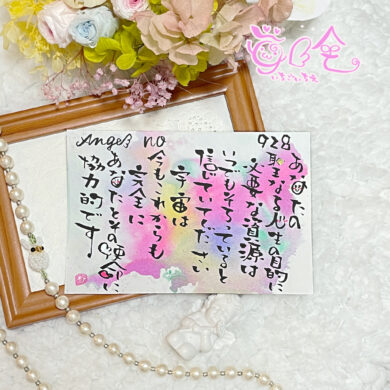 Angel no
928
あなたの
聖なる人生の目的に
必要な資源は
いつでもそろっていると
信じていてください
宇宙は
今もこれからも
完全に
あなたとその使命に
協力的です